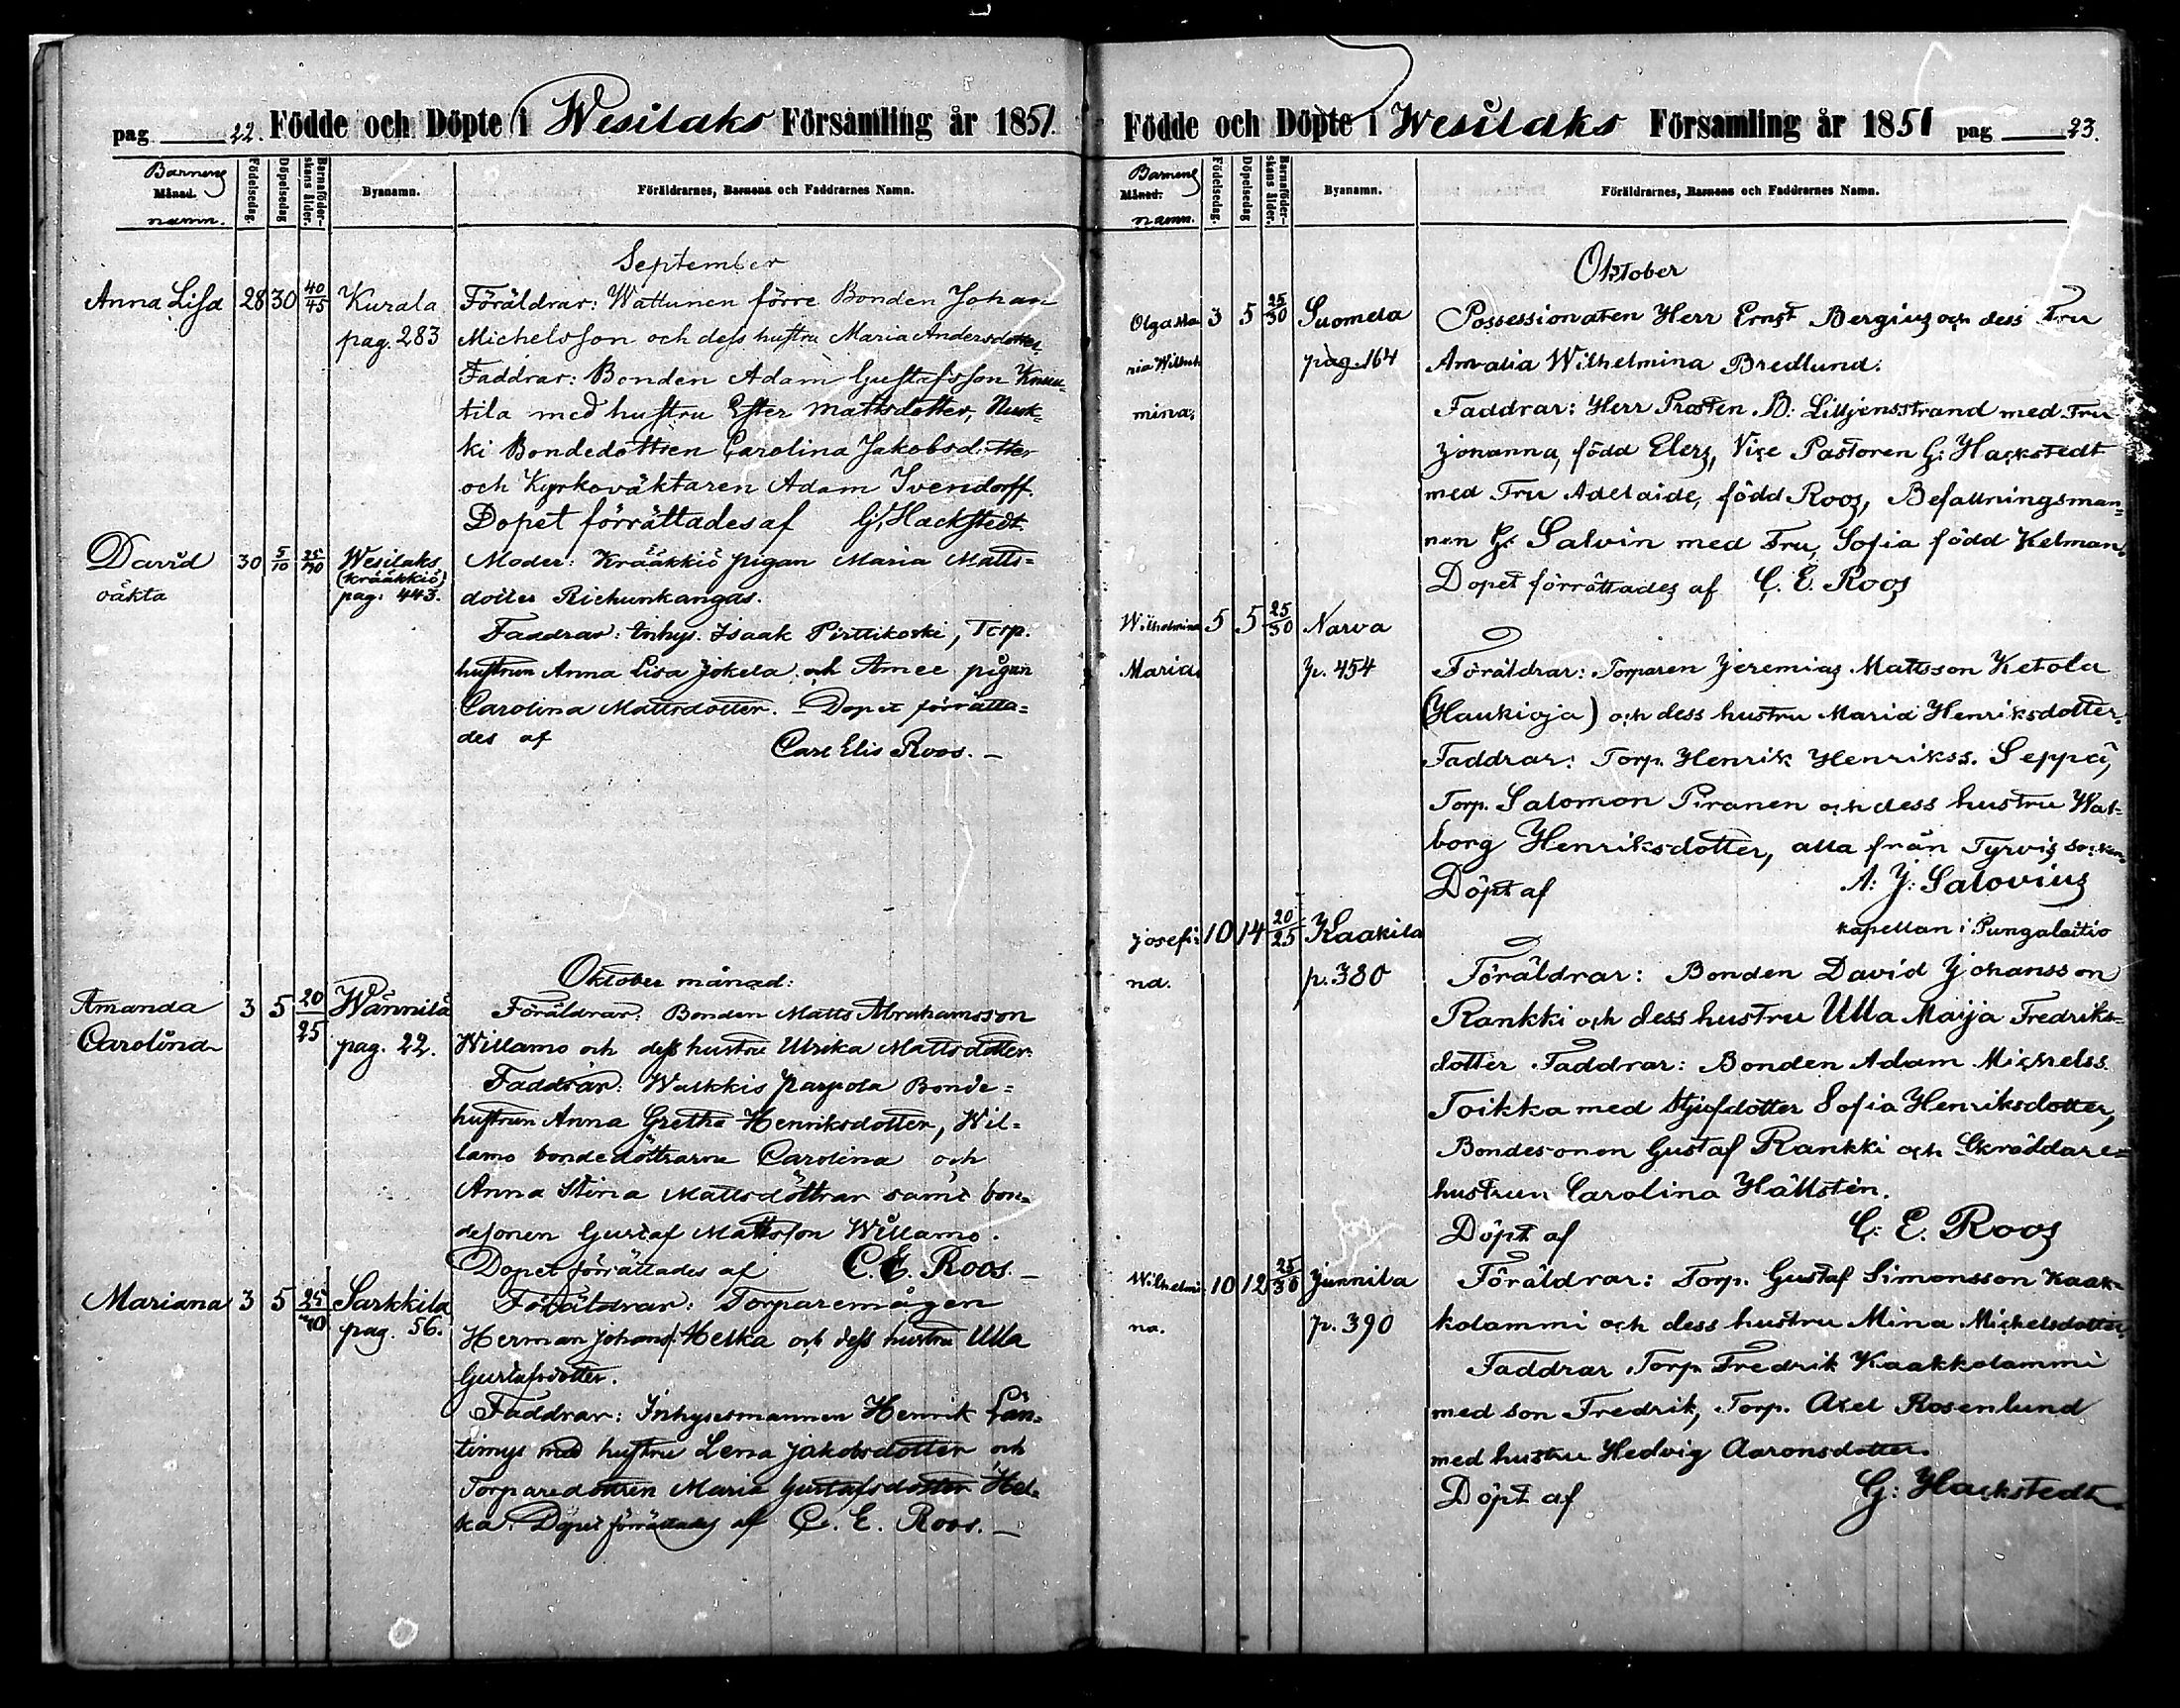 pag 22. Födde och Döpte i Wesilaks Församling år 1851.
Barnens
Månad.
namn.
Födelsedag.
Döpelsedag
Barnaföder-
skans ålder.
Byanamn.
Föräldrarnes, Barnens och Faddrarnes Namn.
September
Anna Lisa 28 30 40/45 Kurala Föräldrar: Wattunen förre Bonden Johan
pag. 283 Michelsson och dess hustru Maria Andersdotter.
Faddrar: Bonden Adam Gustafsson Knuu-
tila med hustru Ester Mattsdotter, Nuuk-
ki Bondedottren Carolina Jakobsdotter
och Kyrkoväktaren Adam Ivendorff.
Dopet förrättades af G. Hackstedt.
David 30 5/10 25/40 Wesilaks Moder: Krääkkiö pigan Maria Matts-
oäkta (Krääkkiö)
pag. 443. dotter Riehunkangas.
Faddrar: Inhys. Isaak Pirttikoski, Torp.
hustrun Anna Lisa Jokela och Amee pigan
Carolina Mattsdotter. – Dopet förrätta-
des af Carl Elis Roos. –
Oktober månad:
Amanda 3 5 20/25 Wännilä Föräldrar: Bonden Matts Abrahamsson
Carolina pag. 22. Willamo och dess hustru Ulrika Mattsdotter.
Faddrar: Walkkis Parpola Bonde-
hustrun Anna Gretha Henriksdotter, Wil-
lamo bondedöttrarna Carolina och
Anna Stina Mattsdöttrar samt bon-
desonen Gustaf Mattsson Willamo.
Dopet förrättades af C. E. Roos. –
Mariana 3 5 25/40 Sarkkila Föräldrar: Torparemågen
pag. 56. Herman Johanss. Helka och dess hustru Ulla
Gustafsdotter.
Faddrar: Inhysesmannen Henrik Län-
timys med hustru Lena Jakobsdotter och
Torparedottren Maria Gustafsdotter Hel-
ka. Dopet förrättades af C. E. Roos. –
Födde och Döpte i Wesilaks Församling år 1851 pag 23.
Barnens
Månad.
namn.
Födelsedag.
Döpelsedag
Barnaföder-
skans ålder.
Byanamn.
Föräldrarnes, Barnens och Faddrarnes Namn.
Oktober
Olga Ma- 3 5 25/30 Suomela Possessionaten Herr Ernst Bergius och dess Fru
ria Wilhel- pag. 164 Amalia Wilhelmina Bredlund.
mina. Faddrar: Herr Prosten B. Liljensstrand med Fru
Johanna, född Elers, Vice Pastoren G. Hackstedt
med Fru Adelaide, född Roos, Befallningsman-
nen G. Salvin med Fru, Sofia född Kelman.
Dopet förrättades af C. E. Roos
Wilhelmina 5 5 25/30 Narva
Maria. p. 454 Föräldrar: Torparen Jeremias Mattsson Ketola
(Haukioja) och dess hustru Maria Henriksdotter.
Faddrar: Torp. Henrik Henrikss. Seppä,
Torp. Salomon Piranen och dess hustru Wal-
borg Henriksdotter, alla från Tyrvis socken.
Döpt af A. J. Salovius
kapellan i Pungalaitio
Josefi- 10 14 20/25 Kaakila
na. p. 380 Föräldrar: Bonden David Johansson
Rankki och dess hustru Ulla Maija Fredriks-
dotter. Faddrar: Bonden Adam Michelss.
Toikka med Stjufdotter Sofia Henriksdotter,
Bondesonen Gustaf Rankki och Skräddare-
hustrun Carolina Hällstén.
Döpt af C. E. Roos
Wilhelmi- 10 12 25/30 Junnila Föräldrar: Torp. Gustaf Simonsson Kaak-
na. p. 390 kolammi och dess hustru Mina Michelsdotter.
Faddrar Torp. Fredrik Kaakkolammi
med son Fredrik, Torp. Axel Rosenlund
med hustru Hedvig Aaronsdotter.
Döpt af G. Hackstedt.